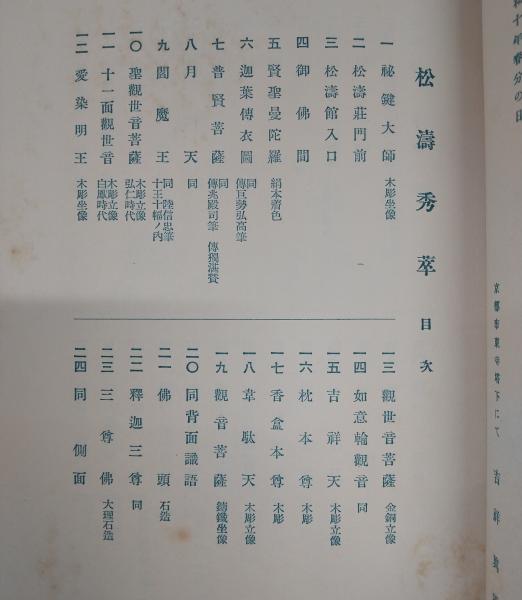 京都市東寺塔下にて
松濤秀萃 目次
一 祕鍵大師 木彫坐像
二 松濤莊門前
三 松濤館入口
四 御佛間
五 賢聖曼陀羅 絹本着色
六 迦葉傳衣圖 同 傳巨勢弘高筆
七 普賢菩薩 同 傳兆殿司筆 傳獨湛賛
八 月天 同
九 閻魔王 同 陸信忠筆 十王十幅ノ內
一〇 聖觀世音菩薩 木彫立像 弘仁時代
一一 十一面觀世音 木彫立像 白鳳時代
一二 愛染明王 木彫坐像
一三 觀世音菩薩 金銅立像
一四 如意輪觀音 同
一五 吉祥天 木彫立像
一六 枕本尊 木彫
一七 香盒本尊 木彫
一八 韋駄天 木彫立像
一九 觀音菩薩 鑄鐵坐像
二〇 同背面識語
二一 佛頭 石造
二二 釋迦三尊 同
二三 三尊佛 大理石造
二四 同側面